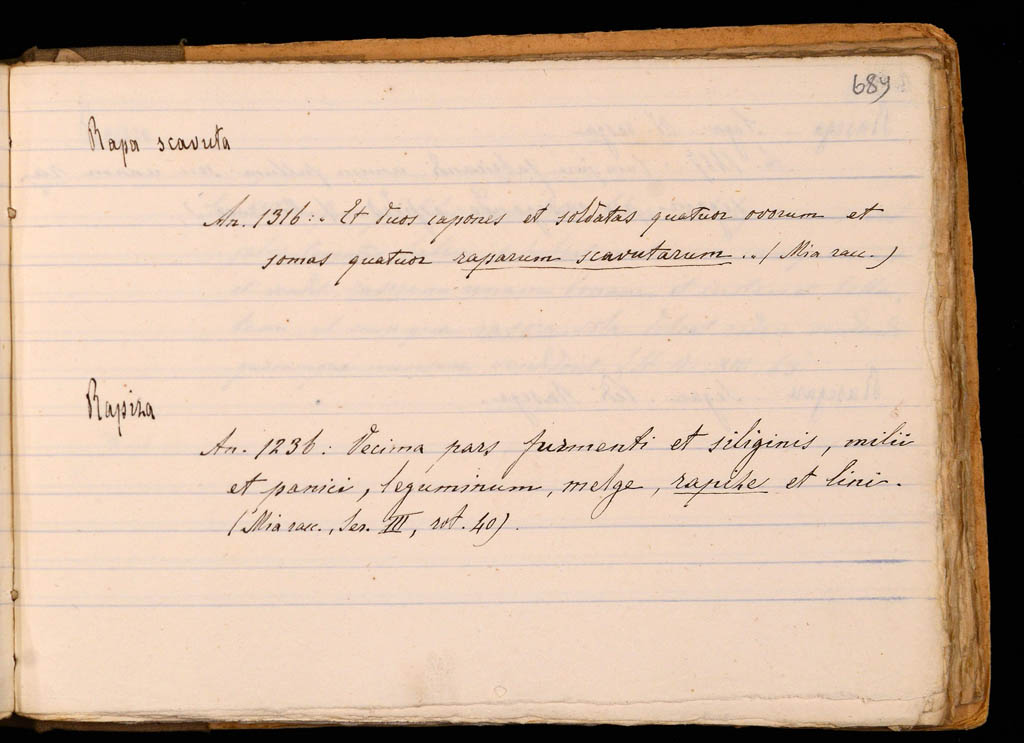 689
Rapa scavuta
An. 1316: . Et duos capones et soldatas quatuor ovorum et
somas quatuor raparum scavutarum .. ( Mia racc. )
Rapiza
An. 1236 : Decima pars furmenti et siliginis, milii
et panici, leguminum, melge, rapize et lini.
(Mia racc., Ser. III, rot. 40).